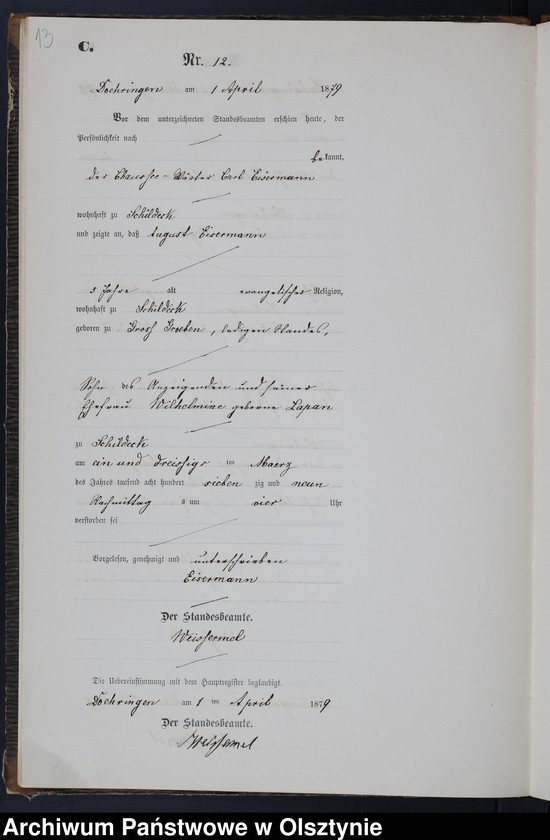 13
C.
Nr. 12.
Doehringen am 1 April 1879
Vor dem unterzeichneten Standesbeamten erschien heute, der
Persönlichkeit nach
be kannt,
der Chaussee-Wärter Carl Eisermann
wohnhaft zu Schildeck
und zeigte an, daß August Eisermann
3 Jahre alt evangelischer Religion,
wohnhaft zu Schildeck
geboren zu Gross Groeben, ledigen Standes,
Sohn des Anzeigenden und seiner
Ehefrau Wilhelmine geborne Lapan
zu Schildeck
am ein und dreissigs ten Maerz
des Jahres tausend acht hundert sieben zig und neun
Nachmittag s um vier Uhr
verstorben sei
Vorgelesen, genehmigt und unterschrieben
Eisermann
Der Standesbeamte.
Weissermel
Die Uebereinstimmung mit dem Hauptregister beglaubigt.
Doehringen am 1 ten April 1879
Der Standesbeamte.
Weissermel
Archiwum Państwowe w Olsztynie